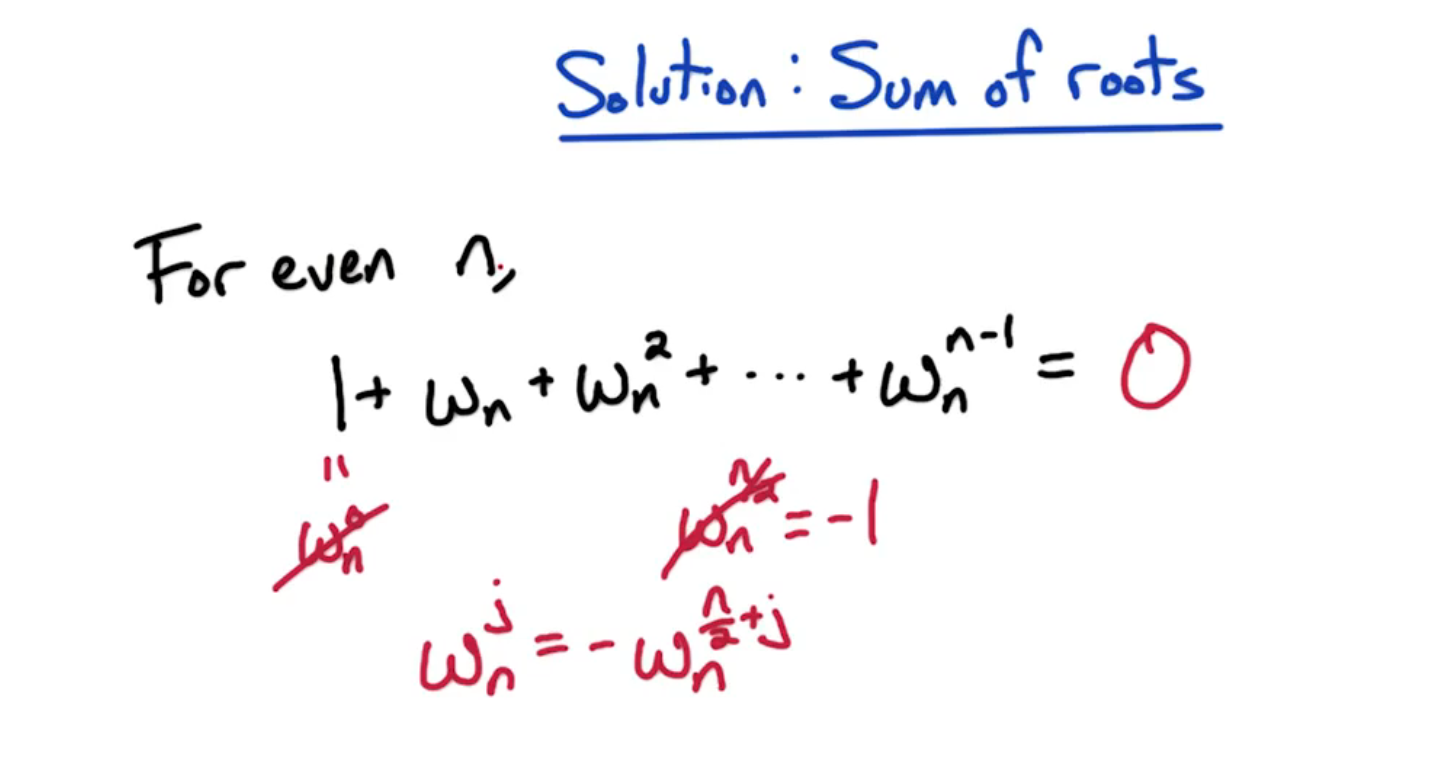 Solution: Sum of roots
For even n,
1 + ωₙ + ωₙ² + ··· + ωₙⁿ⁻¹ = 0
=
ωₙ⁰ ωₙ^(n/2) = -1
ωₙ^j = -ωₙ^(n/2 + j)